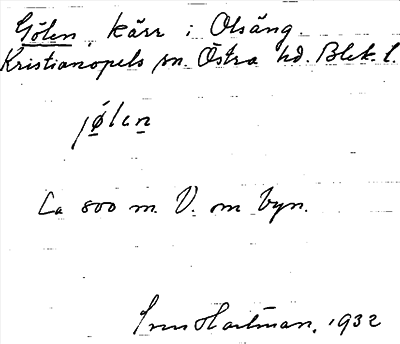 Gölen, kärr i Olsäng.
Kristianopels sn. Östra hd. Blek. l.
jølen
Ca 800 m. V. om byn.
Hartman, 1932